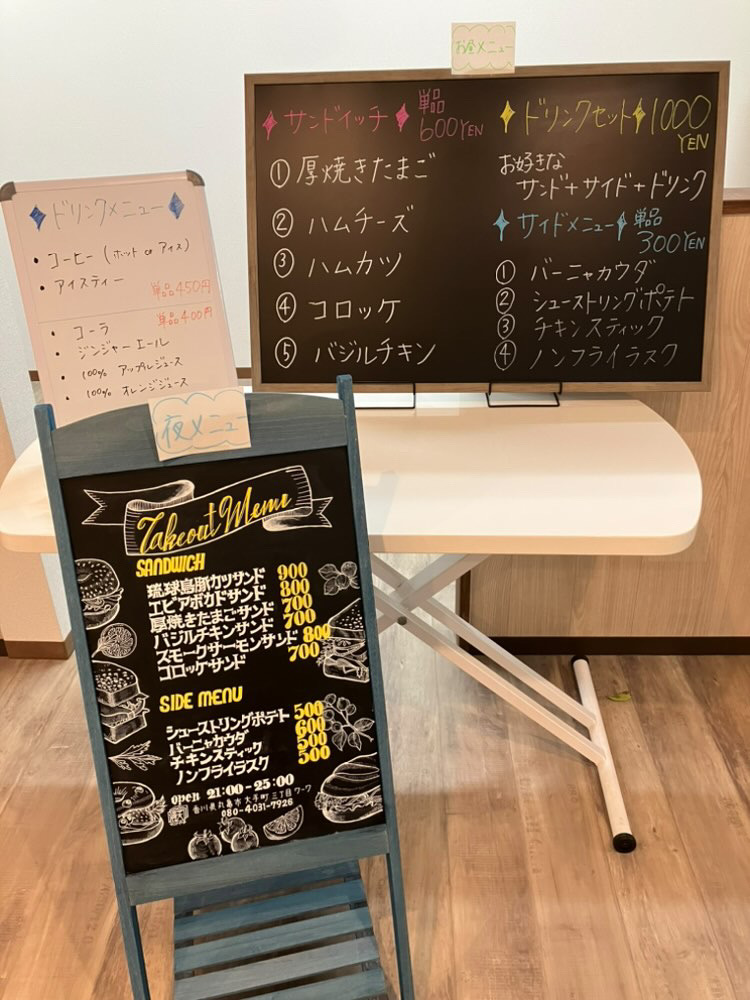 お昼メニュー
サンドイッチ 単品
600YEN
①厚焼きたまご
② ハムチーズ
③ ハムカツ
④ コロッケ
⑤ バジルチキン
ドリンクセット 1000
YEN
お好きな
サンド+サイド+ドリンク
サイドメニュー 単品
300YEN
① バーニャカウダ
② シューストリングポテト
③ チキンスティック
④ ノンフライラスク
ドリンクメニュー
・コーヒー (ホット or アイス)
・アイスティー
単品450円
単品400円
・コーラ
・ジンジャーエール
・100% アップルジュース
・100% オレンジジュース
夜メニュー
Takeout Menu
SANDWICH
琉球島豚カツサンド 900
エビアボカドサンド 800
厚焼きたまごサンド 700
バジルチキンサンド 700
スモークサーモンサンド 800
コロッケサンド 700
SIDE MENU
シューストリングポテト 500
バーニャカウダ 600
チキンスティック 500
ノンフライラスク 500
open 21:00-25:00
香川県丸亀市大手町三丁目ワーワ
080-4031-7926